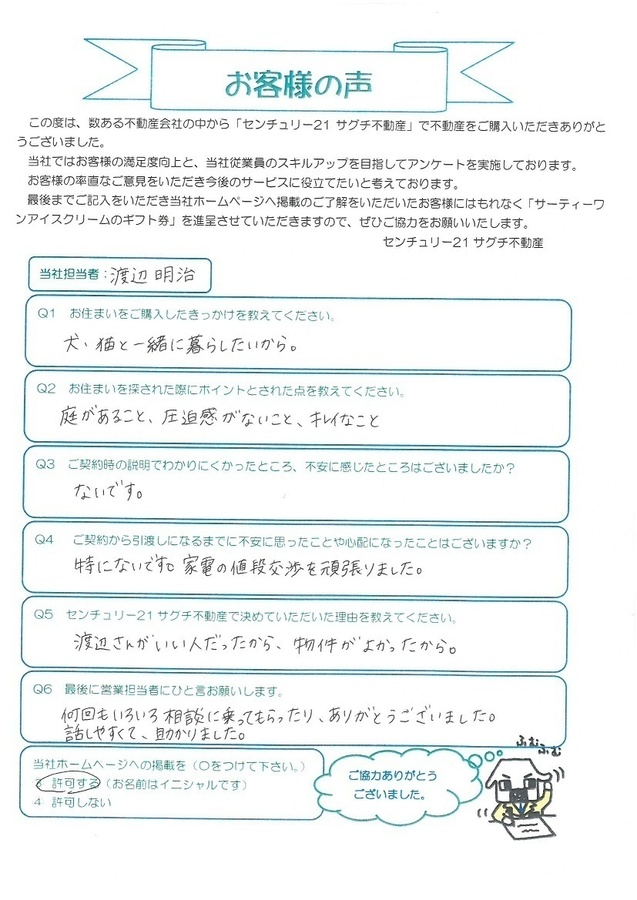 お客様の声
この度は、数ある不動産会社の中から「センチュリー21 サグチ不動産」で不動産をご購入いただきありがと
うございました。
当社ではお客様の満足度向上と、当社従業員のスキルアップを目指してアンケートを実施しております。
お客様の率直なご意見をいただき今後のサービスに役立てたいと考えております。
最後までご記入をいただき当社ホームページへ掲載のご了解をいただいたお客様にはもれなく「サーティーワ
ンアイスクリームのギフト券」を進呈させていただきますので、ぜひご協力をお願いいたします。
センチュリー21 サグチ不動産
当社担当者：渡辺 明治
Q1 お住まいをご購入したきっかけを教えてください。
犬、猫と一緒に暮らしたいから。
Q2 お住まいを探された際にポイントとされた点を教えてください。
庭があること、圧迫感がないこと、キレイなこと
Q3 ご契約時の説明でわかりにくかったところ、不安に感じたところはございましたか？
ないです。
Q4 ご契約から引渡しになるまでに不安に思ったことや心配になったことはございますか？
特にないです。家電の値段交渉を頑張りました。
Q5 センチュリー21 サグチ不動産で決めていただいた理由を教えてください。
渡辺さんがいい人だったから、物件がよかったから。
Q6 最後に営業担当者にひと言お願いします。
何回もいろいろ相談に乗ってもらったり、ありがとうございました。
話しやすくて、助かりました。
当社ホームページへの掲載を（〇をつけて下さい。）
3 許可する（お名前はイニシャルです）
4 許可しない
ご協力ありがとう
ございました。
ふむふむ